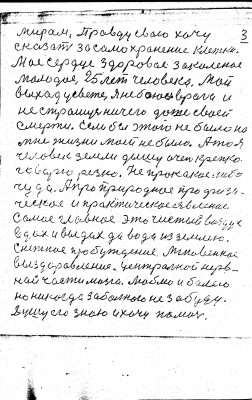 3
мирам, Правду свою хочу
сказат за самохранение Клетки.
Мое сердце здоровое закаленое
молодое, 25 лет человека. Мой
выход у свете, я не боюсь врага и
не страшус ничего даже своей
смерти. Если бы этого не было на
мне жизни моей не было. А то я
человек земли дышу очен крепко
говорю резко. Не про какое либо
чуда. А про природное про физи-
ческое и практическое явление.
Самое главное это чистый воздух
вдох и выдох да вода и землею.
Снежное пробуждение. Мгновенное
выздоравление. централной нерв-
най части мозга. Люблю и болею
но никогда заболного не забуду.
Душу его знаю и хочу помоч.